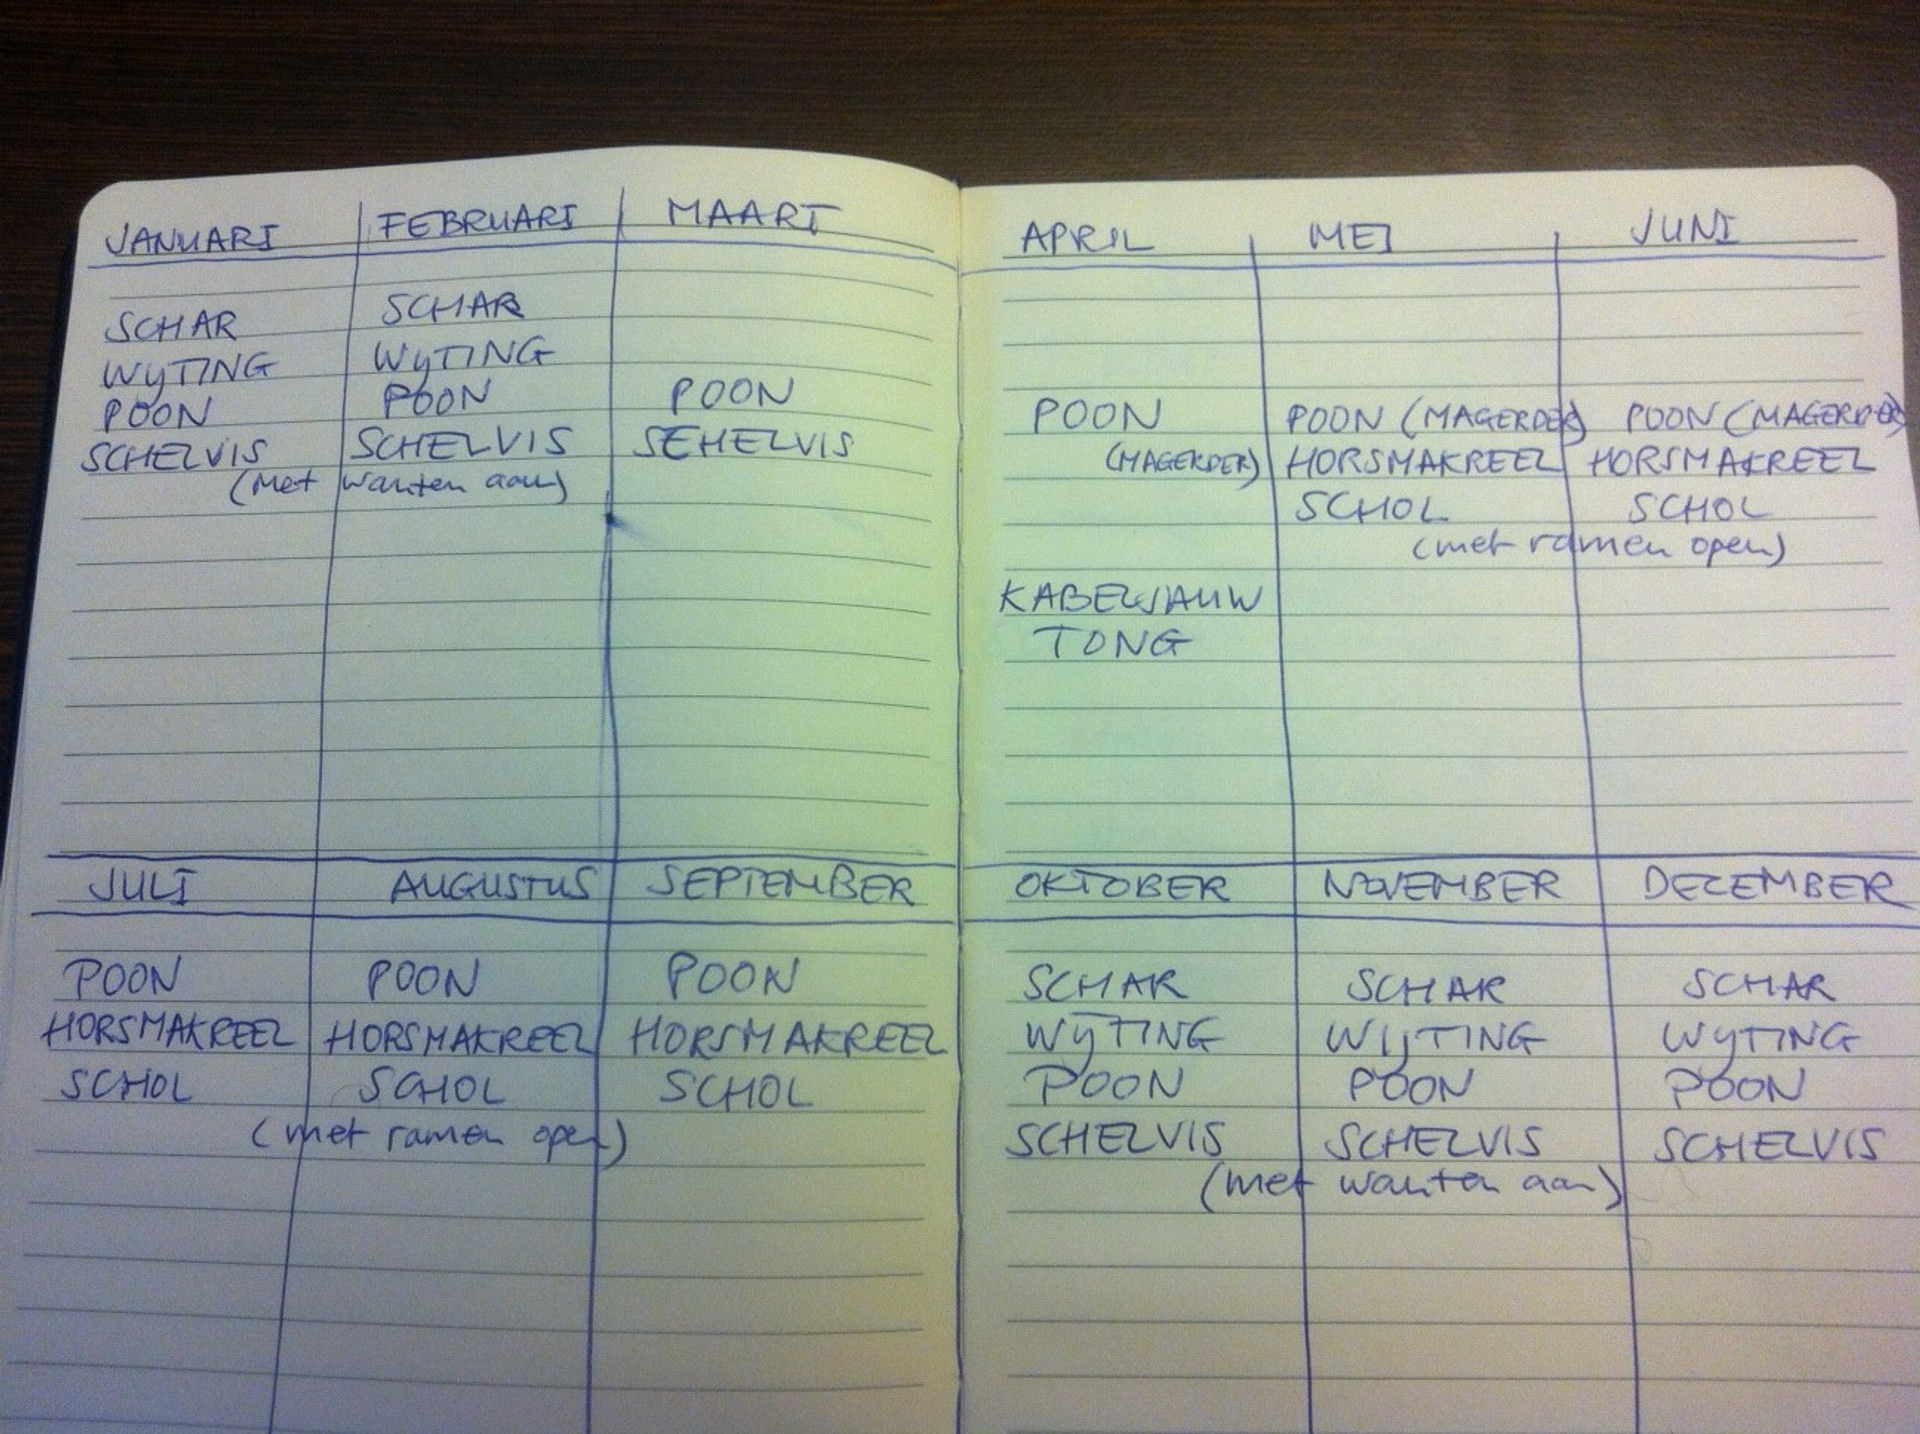 JANUARI FEBRUARI MAART
SCHAR SCHAR
WYTING WYTING
POON POON POON
SCHELVIS SCHELVIS SCHELVIS
(met wanten aan)
APRIL MEI JUNI
POON POON (MAGERDER) POON (MAGERDER)
(MAGERDER) HORSMAKREEL HORSMAKREEL
SCHOL SCHOL
(met ramen open)
KABELJAUW
TONG
JULI AUGUSTUS SEPTEMBER
POON POON POON
HORSMAKREEL HORSMAKREEL HORSMAKREEL
SCHOL SCHOL SCHOL
(met ramen open)
OKTOBER NOVEMBER DECEMBER
SCHAR SCHAR SCHAR
WYTING WIJTING WYTING
POON POON POON
SCHELVIS SCHELVIS SCHELVIS
(met wanten aan)